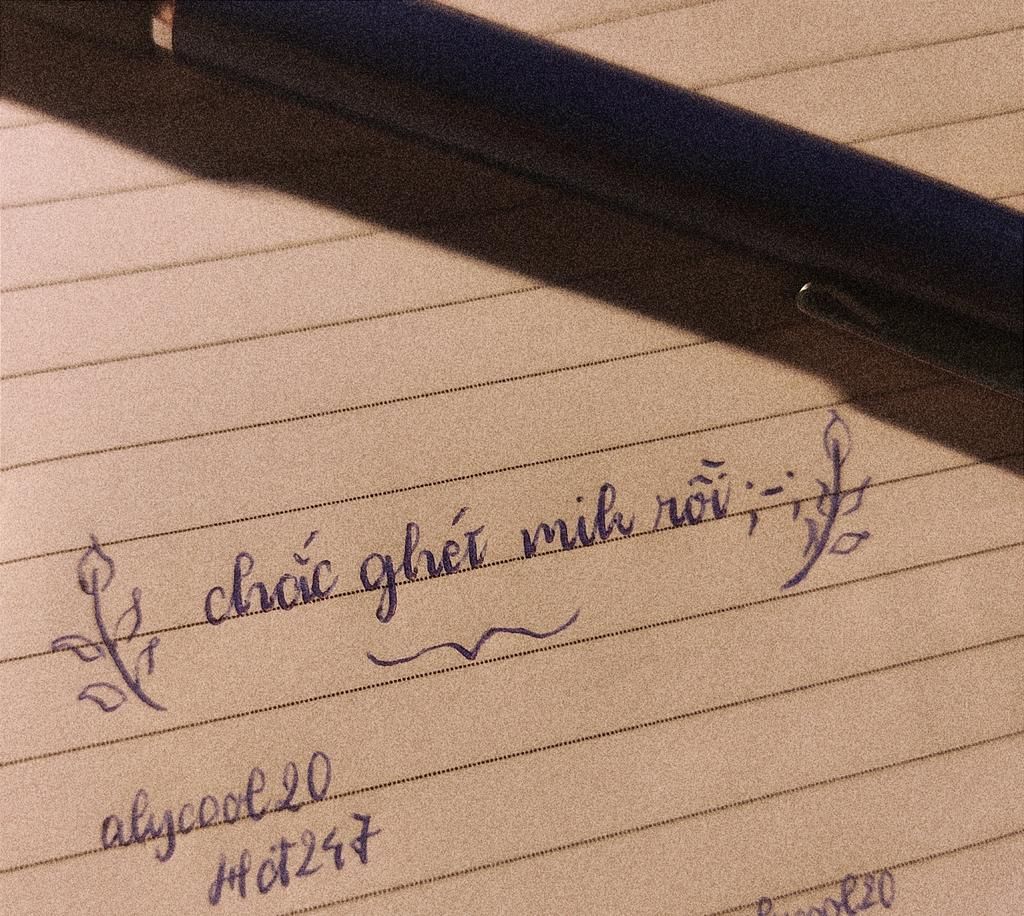 chắc ghét mik rồi ;-;
alycool20
Hot247